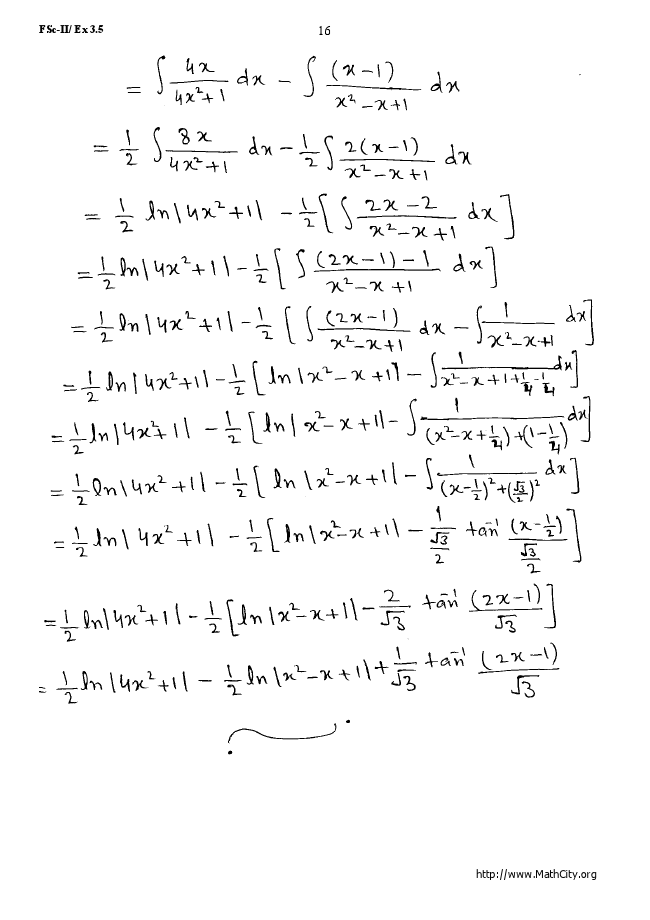 FSc-II/ Ex 3.5
16
= ∫ 4x/(4x²+1) dx − ∫ (x−1)/(x²−x+1) dx
= 1/2 ∫ 8x/(4x²+1) dx − 1/2 ∫ 2(x−1)/(x²−x+1) dx
= 1/2 ln|4x²+1| − 1/2 [ ∫ (2x−2)/(x²−x+1) dx ]
= 1/2 ln|4x²+1| − 1/2 [ ∫ ((2x−1)−1)/(x²−x+1) dx ]
= 1/2 ln|4x²+1| − 1/2 [ ∫ (2x−1)/(x²−x+1) dx − ∫ 1/(x²−x+1) dx ]
= 1/2 ln|4x²+1| − 1/2 [ ln|x²−x+1| − ∫ 1/(x²−x+1+1/4−1/4) dx ]
= 1/2 ln|4x²+1| − 1/2 [ ln|x²−x+1| − ∫ 1/((x²−x+1/4)+(1−1/4)) dx ]
= 1/2 ln|4x²+1| − 1/2 [ ln|x²−x+1| − ∫ 1/((x−1/2)²+(√3/2)²) dx ]
= 1/2 ln|4x²+1| − 1/2 [ ln|x²−x+1| − 1/(√3/2) tan⁻¹ (x−1/2)/(√3/2) ]
= 1/2 ln|4x²+1| − 1/2 [ ln|x²−x+1| − 2/√3 tan⁻¹ (2x−1)/√3 ]
= 1/2 ln|4x²+1| − 1/2 ln|x²−x+1| + 1/√3 tan⁻¹ (2x−1)/√3
http://www.MathCity.org